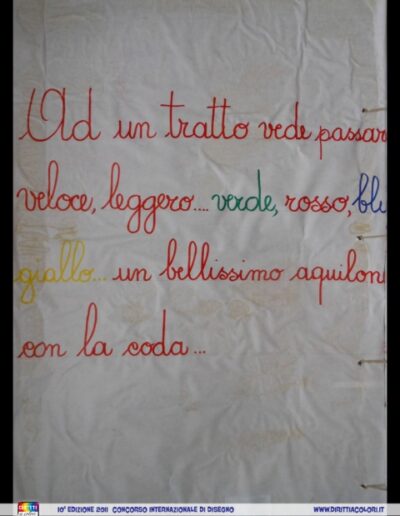 Ad un tratto vede passar
veloce, leggero.... verde, rosso, blu
giallo... un bellissimo aquilon
con la coda...
10ª EDIZIONE 2011 CONCORSO INTERNAZIONALE DI DISEGNO WWW.DIRITTIACOLORI.IT